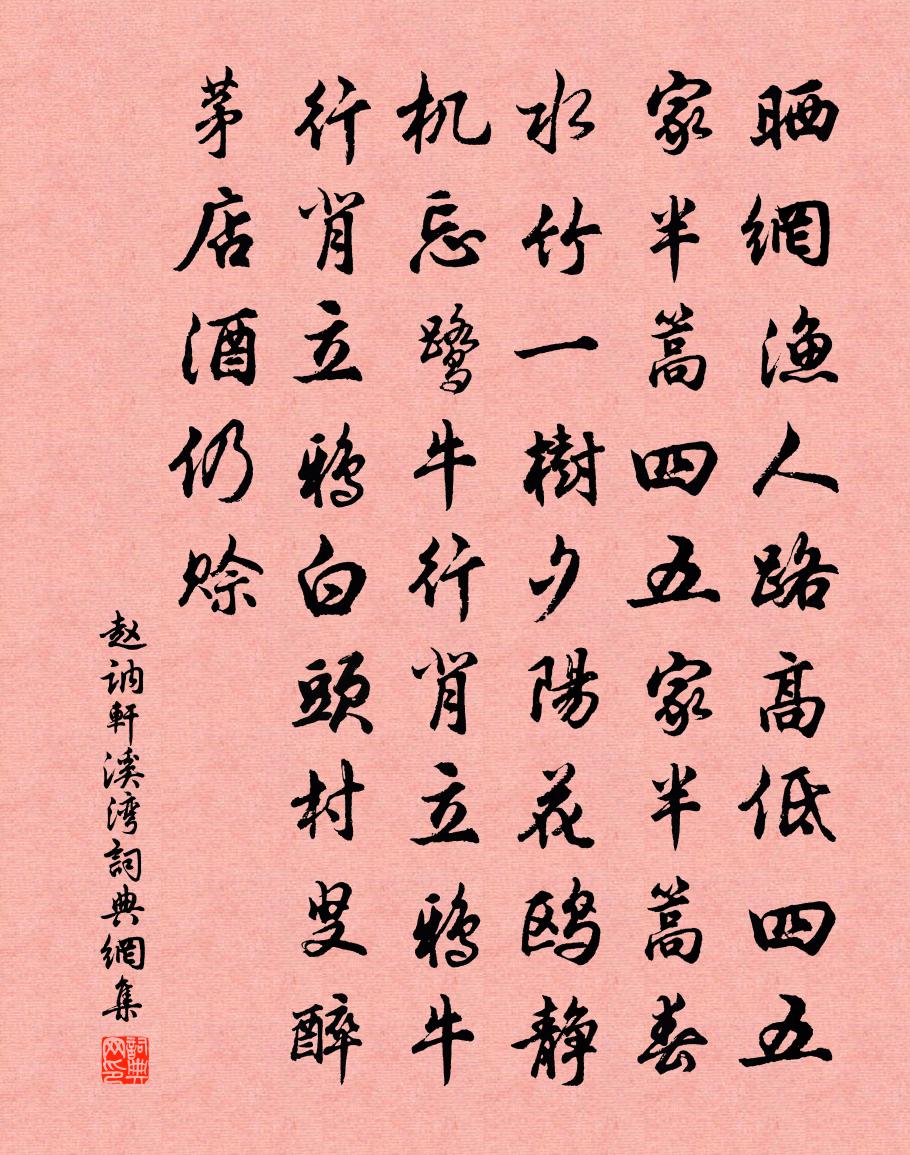 晒網漁人路高低四五
家半蒿四五家半蒿春
水竹一樹夕陽花鸥静
机忘鹭牛行背立鴉牛
行背立鴉白頭村叟醉
茅店酒仍赊
赵讷軒溪湾詞典網集
詞典网印